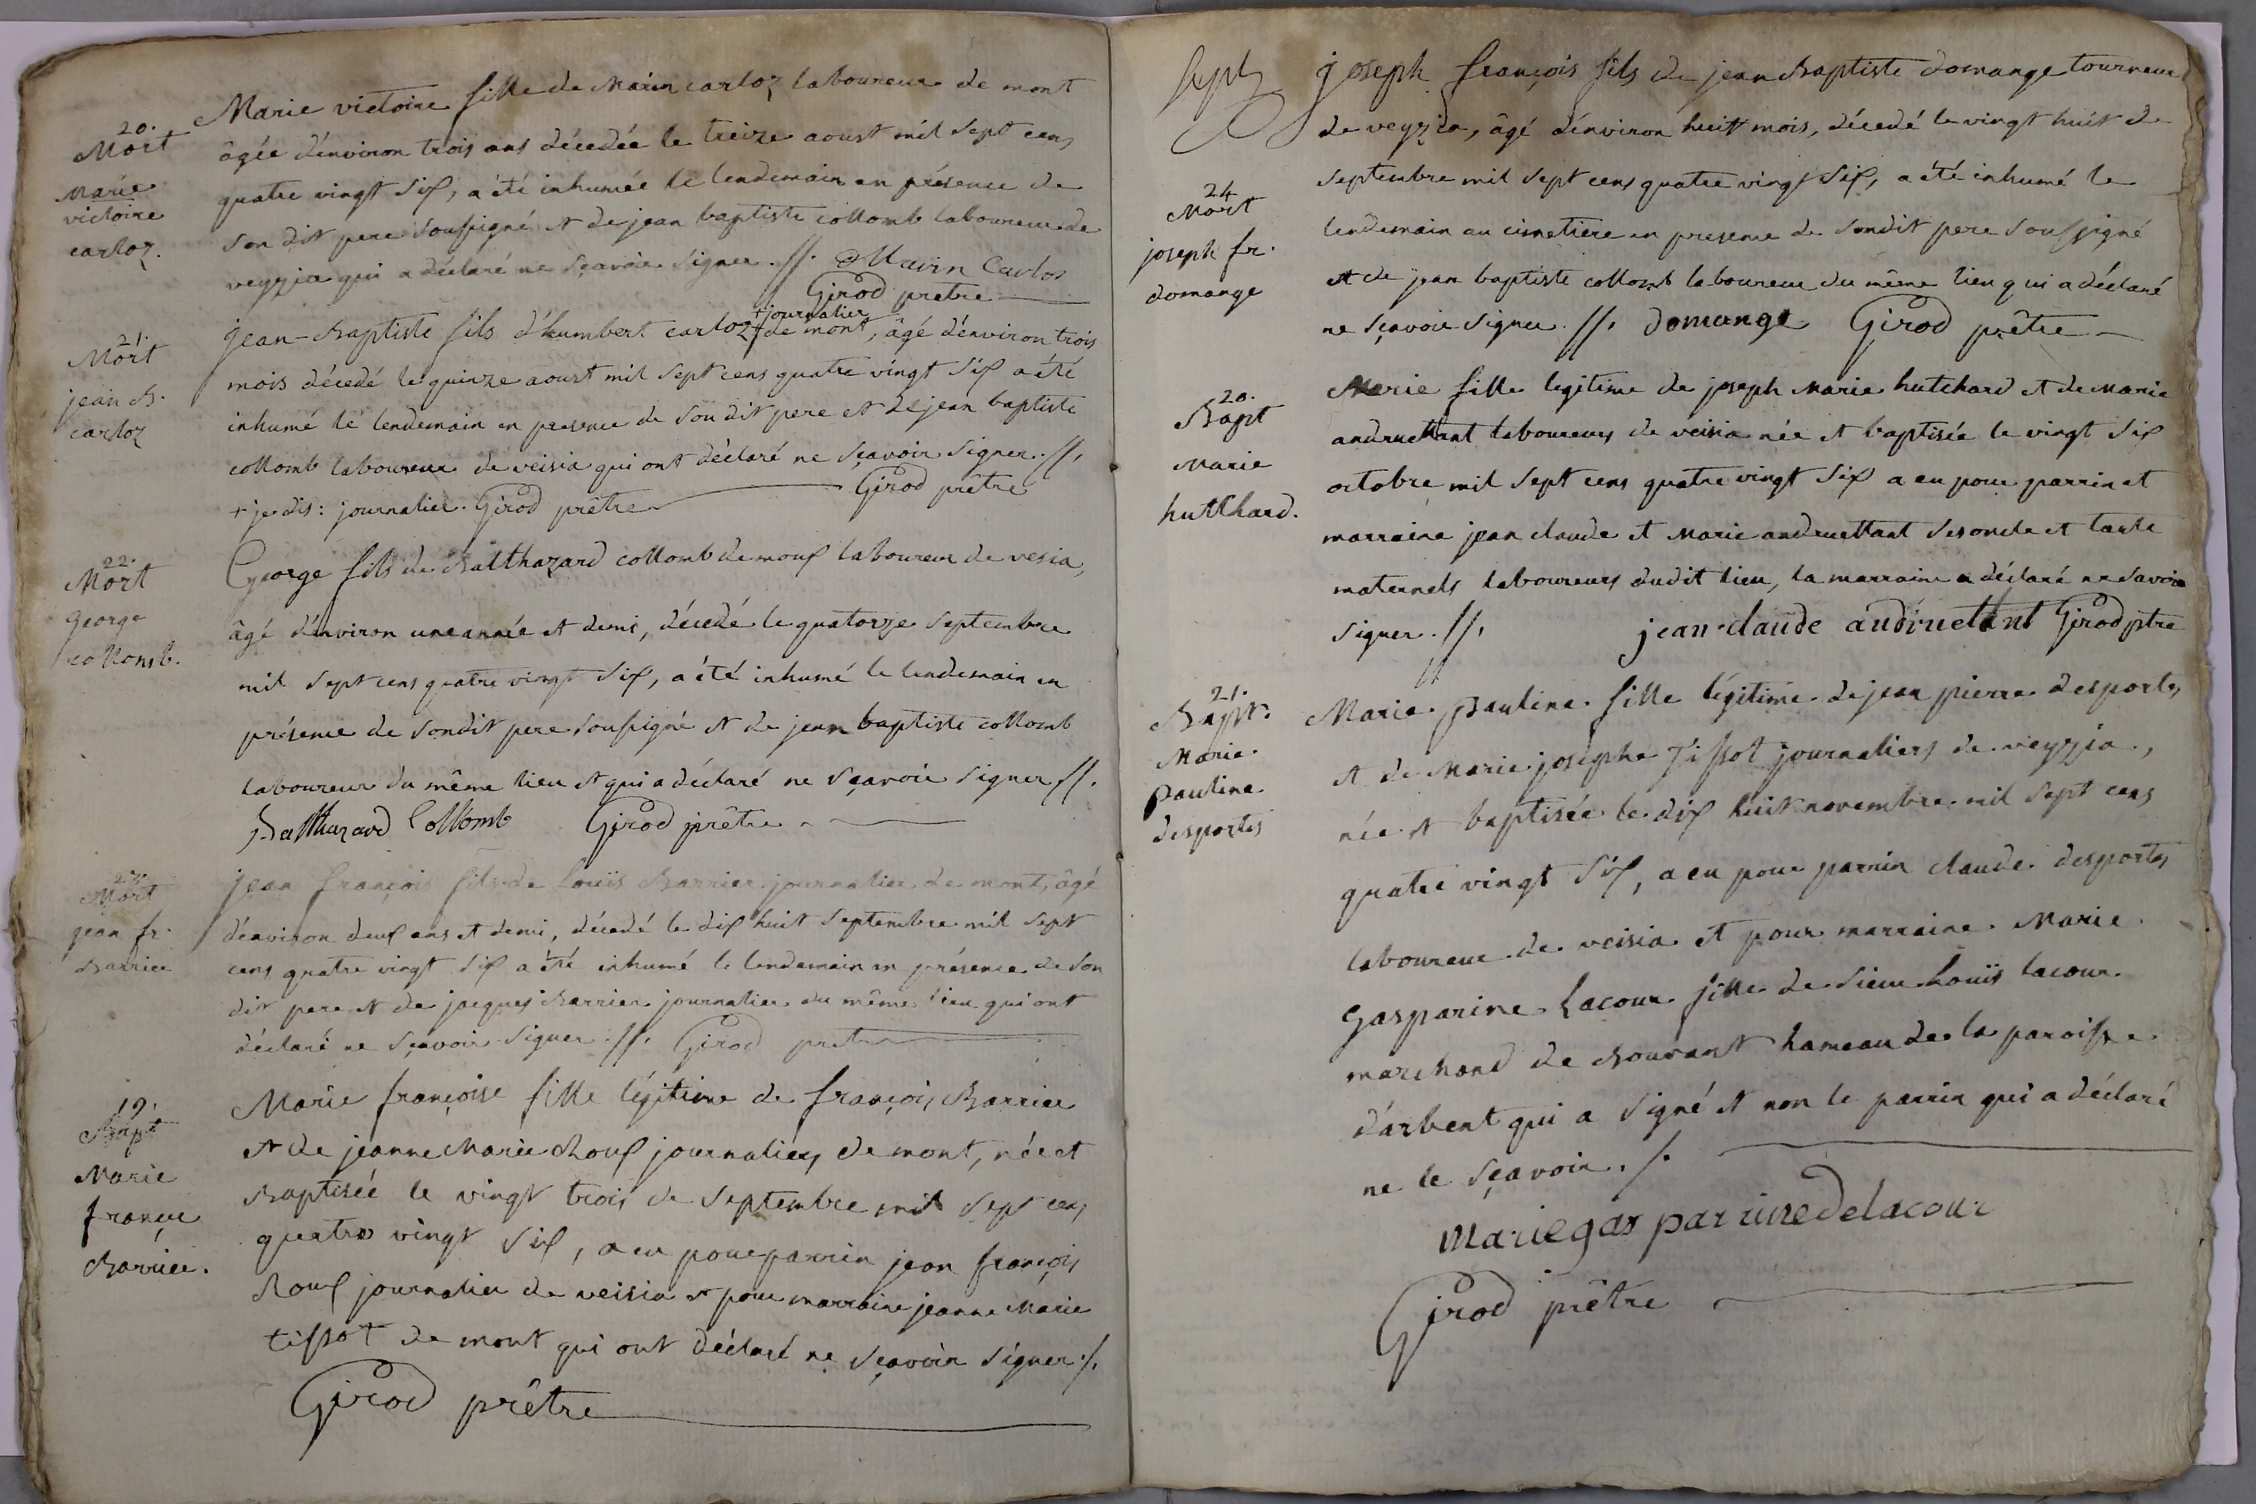 20.
Mort
Marie
victoire
carloz.
Marie victoire fille de Marin carloz laboureur de mont
âgée d'environ trois ans décédée le treize aoust mil sept cens
quatre vingt six, a été inhumée le lendemain en présence de
son dit pere soussigné et de jean baptiste collomb laboureur de
veyzia qui a déclaré ne sçavoir signer .//. Marin Carlos
Girod prêtre
21.
Mort
jean B.
carloz
jean-Baptiste fils d'humbert carloz + journalier de mont, âgé d'environ trois
mois décédé le quinze aoust mil sept cens quatre vingt six a été
inhumé le lendemain en présence de son dit pere et de jean baptiste
collomb laboureur de veisia qui ont déclaré ne sçavoir signer .//.
+ je dis : journalier. Girod prêtre Girod prêtre
22.
Mort
george
collomb.
George fils de Balthazard collomb de moux laboureur de vesia,
âgé d'environ une année et demi, décédé le quatorze septembre
mil sept cens quatre vingt six, a été inhumé le lendemain en
présence de son dit pere soussigné et de jean baptiste collomb
laboureur du même lieu et qui a déclaré ne sçavoir signer //.
Balthazard Collomb Girod prêtre
23.
Mort
jean fr.
Barrier
jean françois fils de Louis Barrier journalier de mont, âgé
d'environ deux ans et demi, décédé le dix huit septembre mil sept
cens quatre vingt six a été inhumé le lendemain en présence de son
dit pere et de jacques Barrier journalier du même lieu qui ont
déclaré ne sçavoir signer .//. Girod prêtre
19.
Bapt
Marie
françse
Barrier.
Marie françoise fille légitime de françois Barrier
et de jeanne Marie Roux journaliers de mont, née et
Baptisée le vingt trois de septembre mil sept cens
quatre vingt six, a eu pour parrin jean françois
Roux journalier de veisia et pour marraine jeanne Marie
tissot de mont qui ont déclaré ne sçavoir signer ./.
Girod prêtre
sept
24
Mort
joseph fr.
domange
joseph françois fils de jean Baptiste domange tourneur
de veyzia, âgé d'environ huit mois, décedé le vingt huit de
septembre mil sept cens quatre vingt six, a été inhumé le
lendemain au cimetiere en presence de son dit pere soussigné
et de jean baptiste collomb laboureur du même lieu qui a déclaré
ne sçavoir signer .//. domange Girod prêtre
20.
Bapt
Marie
hutthard.
Marie fille legitime de joseph Marie hutthard et de Marie
andruettant laboureurs de veisia née et baptisée le vingt six
octobre mil sept cens quatre vingt six a eu pour parrin et
marraine jean claude et Marie andruettant ses oncle et tante
maternels laboureurs dudit lieu, la marraine a déclaré ne savoir
signer .//. jean claude andruétant Girod ptre
21.
Bapt.
Marie.
Pauline
desportes
Marie. Pauline. fille légitime de jean pierre desportes
et de Marie josephe Tissot journaliers de veyzia.,
née et baptisée le dix huit novembre mil sept cens
quatre vingt six, a eu pour parrin claude desportes
laboureur de veisia et pour marraine. Marie.
Gasparine. Lacour fille de sieur Louis lacour.
marchand de Bouvant hameau de la paroisse.
d'arbent qui a signé et non le parrin qui a déclaré
ne le sçavoir ./.
Marie gas parrine de lacour
Girod prêtre